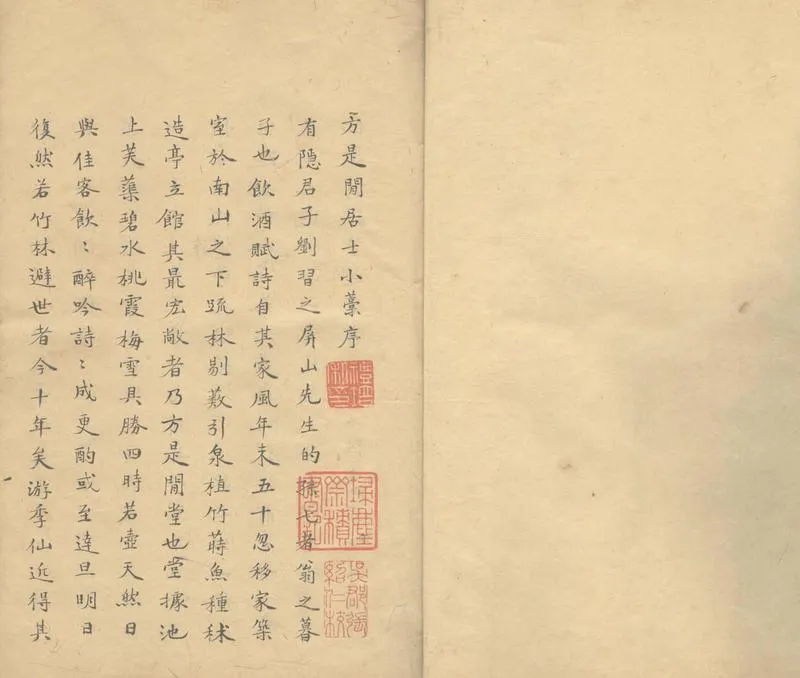 方是閒居士小藁序
禮培私印
埽塵齋積書記
吳郡張紹仁校
有隱君子劉習之屏山先生的七者翁之暮
子也飲酒賦詩自其家風年未五十忽移家築
室於南山之下疏林剔薮引泉植竹蒔魚種秫
造亭立館其最宏敞者乃方是閒堂也堂據池
上芙蕖碧水桃霞梅雪具勝四時若壺天然日
與佳客飲〻醉吟詩〻成更酌或至達旦明日
復然若竹林避世者今十年矣游季仙近得其